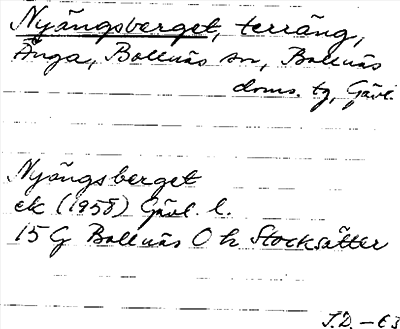 Nyängsberget, terräng,
Änga, Bollnäs sn, Bollnäs
doms. tg, Gävl.
Nyängsberget
ek (1958) Gävl. l.
15 G Bollnäs O h Stocksätter
J.D. -63